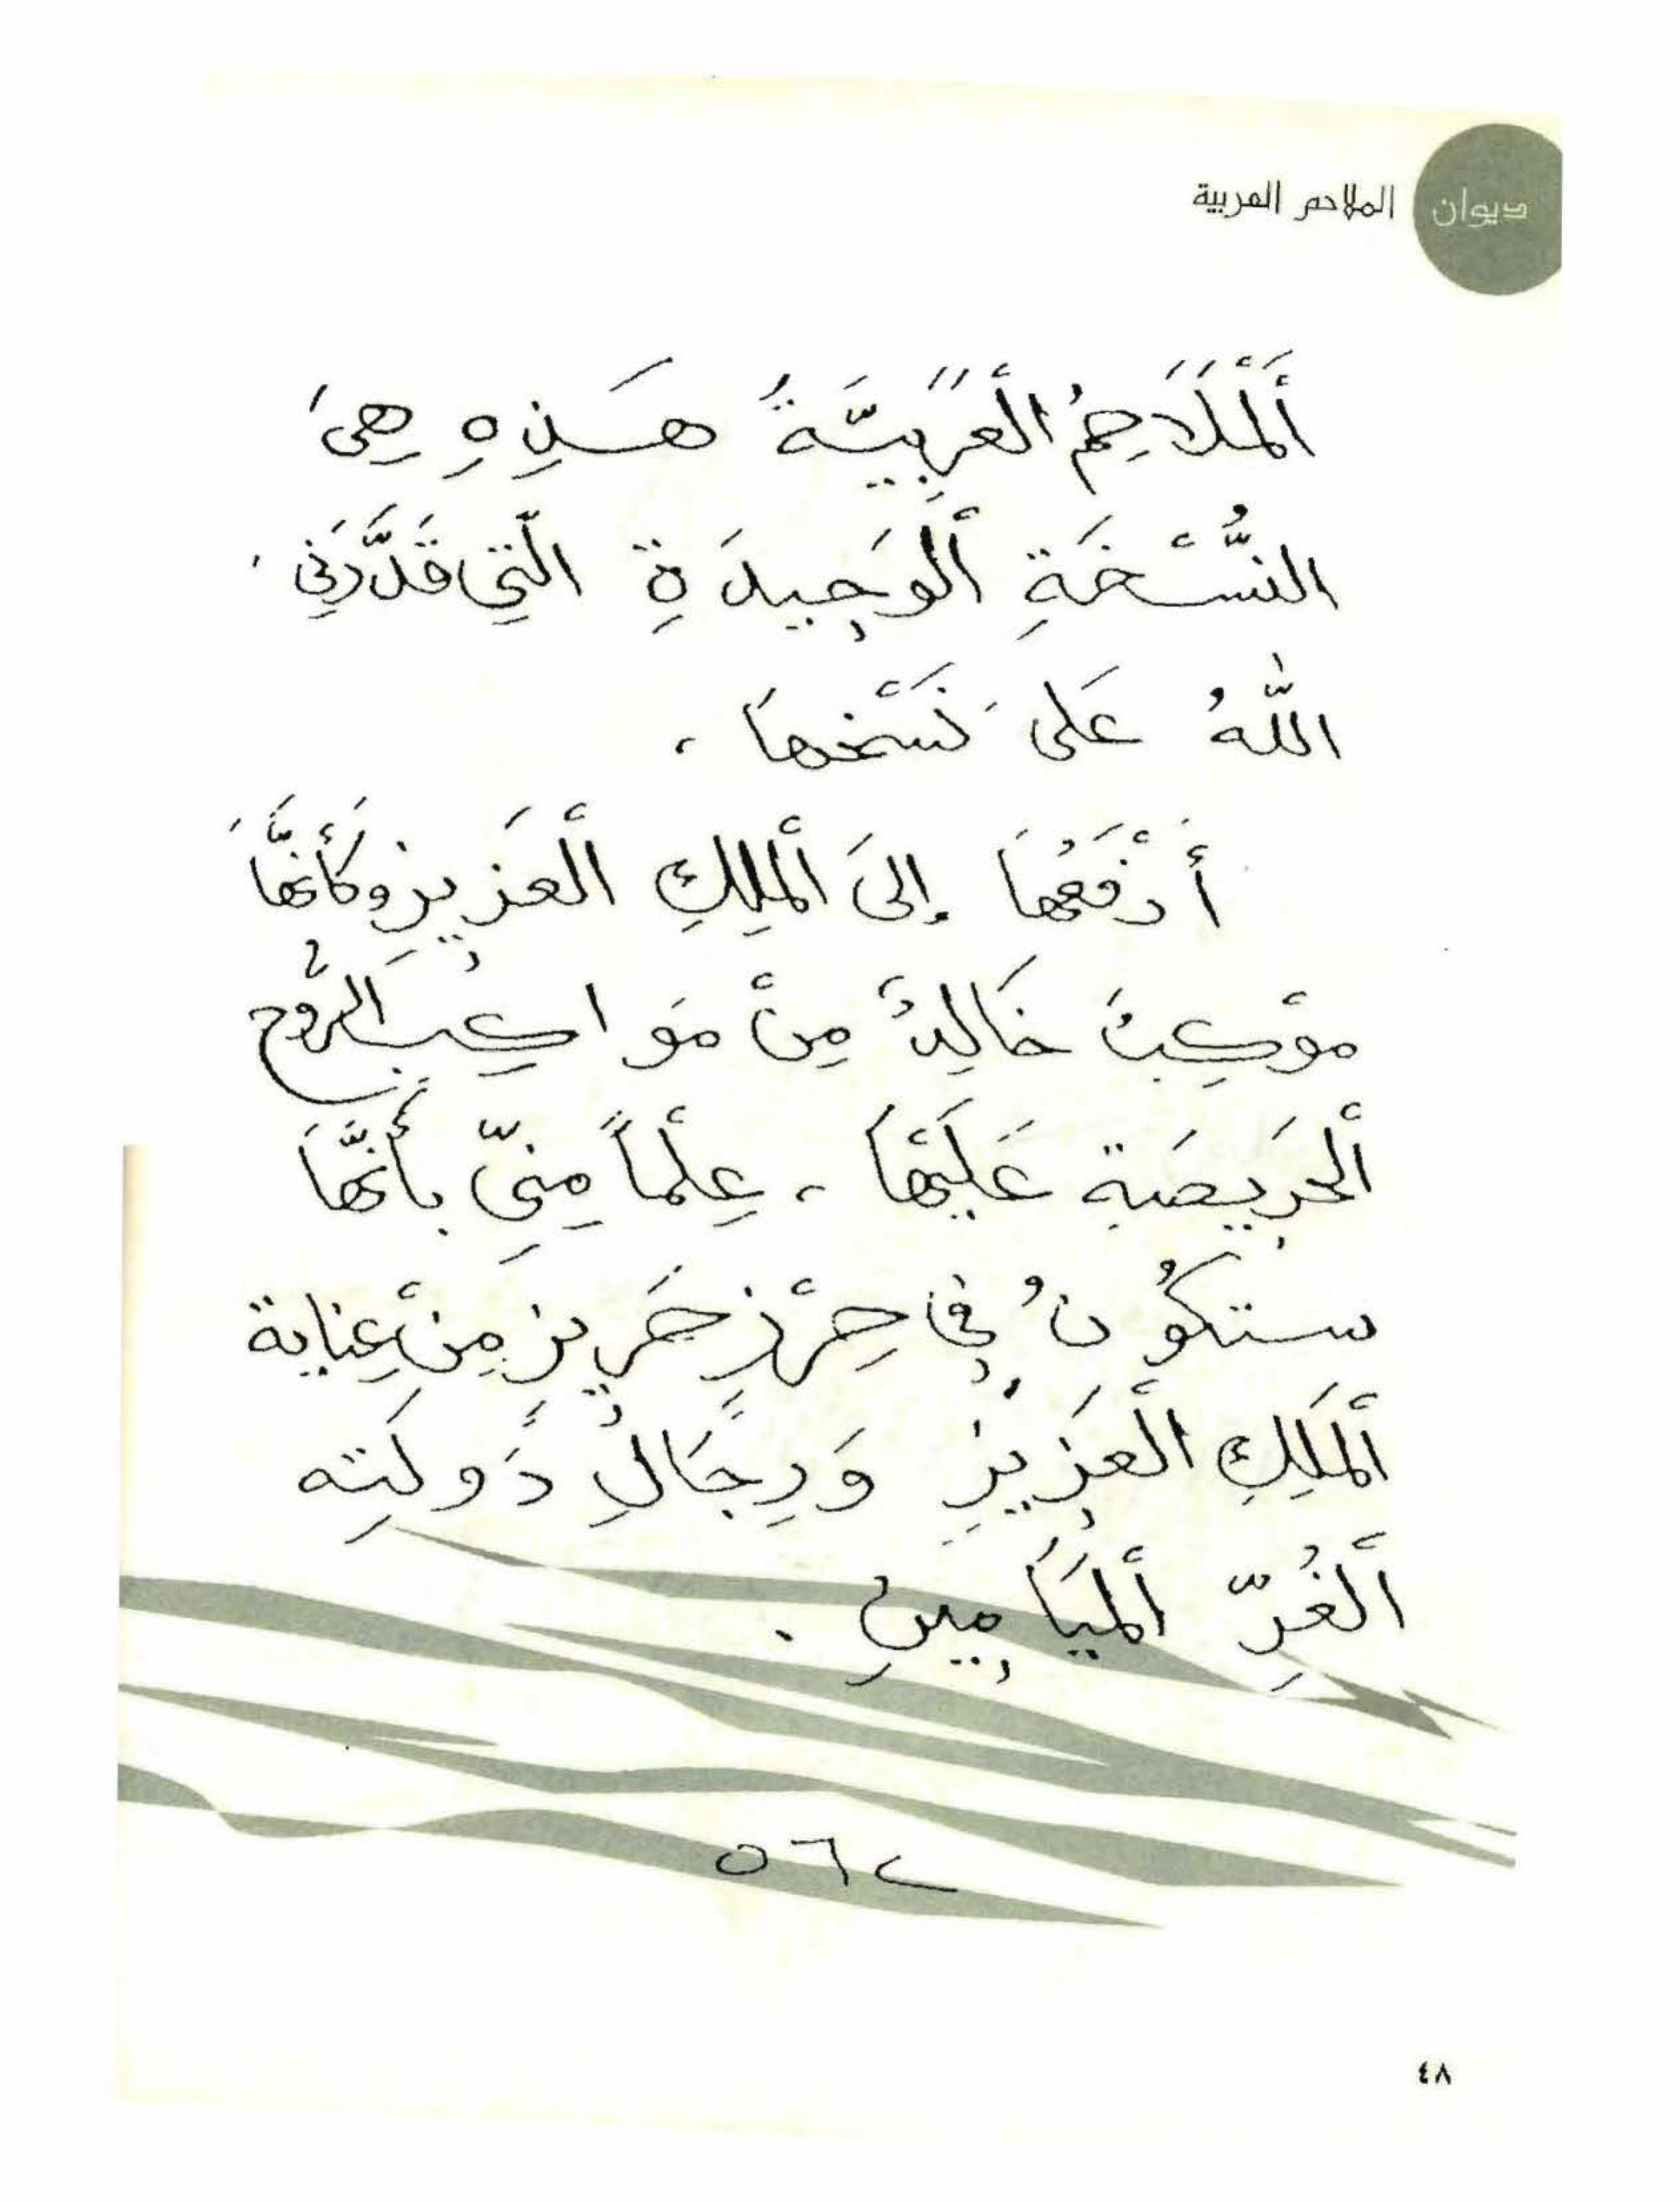 ديوان الملاحم العربية
أَلْمَلَاحِمُ الْعَرَبِيَّةُ هَـذِهِ هِيَ
النُّسْخَةِ أَلْوَحِيدَةِ الَّتِي قَدَّرَنِي
اللّٰهُ عَلى نَسْخِهَا ،
أَدْفَعُهَا إِلىَ أَلْمَلِكِ الْعَزِيزِ وكَأَنَّهَا
موْكِبٌ خَالِدٌ مِنْ مَواكِبِ الرُّوحِ
أَلْحَرِيصَةِ عَلَيْهَا ، عِلْماً مِنِّي بأَنَّهَا
ستكُونُ فِي حِرْزٍ حَرِيزٍ مِنْ عِنَاية
أَلمَلِكِ الْعَزِيزِ وَرِجَالِ دَولَتِه
أَلْغُرِّ أَلْمَيَامِينِ .
٥٦٢
٤٨